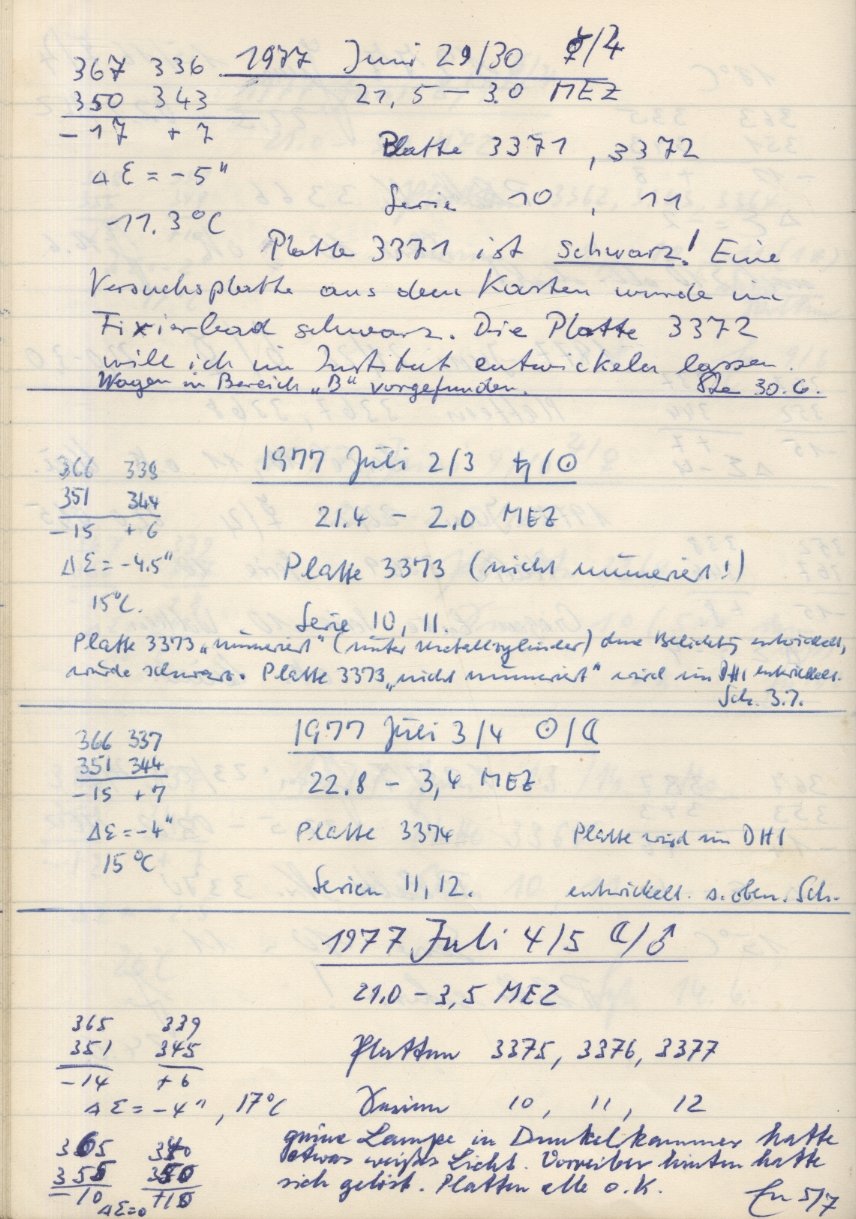 367 336 1977 Juni 29/30 ☿/♃
350 343 21,5 – 3.0 MEZ
-17 +7
Platte 3371, 3372
Δε = -5"
Serie 10, 11
11.3°C
Platte 3371 ist schwarz! Eine
Versuchsplatte aus dem Kasten wurde im
Fixierbad schwarz. Die Platte 3372
will ich im Institut entwickeln lassen.
Wagen in Bereich „B" vorgefunden. 30.6.
366 338 1977 Juli 2/3 ♄/☉
351 344 21.4 – 2.0 MEZ
-15 +6
Δε = -4.5" Platte 3373 (nicht numeriert!)
15°C.
Serie 10, 11.
Platte 3373 „numeriert" (unter Metallzylinder) ohne Belichtg entwickelt,
wurde schwarz. Platte 3373 „nicht numeriert" wird im DHI entwickelt.
Sch. 3.7.
366 337 1977 Juli 3/4 ☉/☾
351 344
-15 +7 22.8 – 3,4 MEZ
Δε = -4" Platte 3374 Platte wird im DHI
15°C
Serien 11, 12. entwickelt. s. oben. Sch.
1977 Juli 4/5 ☾/♂
21.0 – 3,5 MEZ
365 339
351 345 Platten 3375, 3376, 3377
-14 +6
Δε = -4", 17°C Serien 10, 11, 12
grüne Lampe in Dunkelkammer hatte
365 340 etwas weißes Licht. Vorreiber hinten hatte
355 350 sich gelöst. Platten alle o.K.
-10 +10 Δε=0 5/7